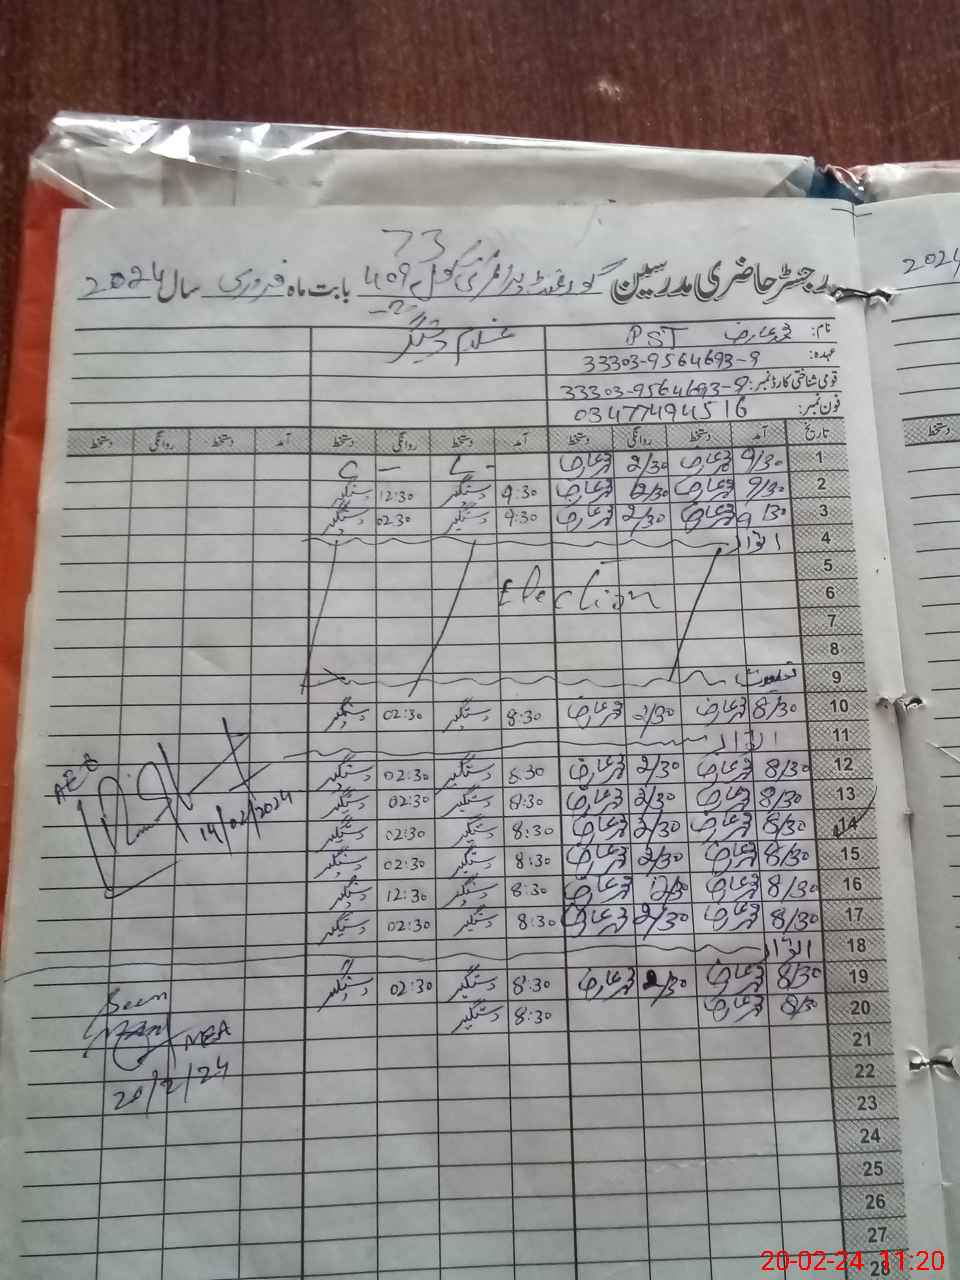 73
رجسٹر حاضری مدرسین گورنمنٹ پرائمری سکول 409 بابت ماہ فروری سال 2024
2024
نام: محمد عارف PST غلام دستگیر
عہدہ: 33303-9564693-9
قومی شناختی کارڈ نمبر: 33303-9564693-9
فون نمبر: 03477494516
تاریخ آمد دستخط روانگی دستخط آمد دستخط روانگی دستخط آمد دستخط روانگی دستخط
دستخط
1 9/30 محمد عارف 2/30 محمد عارف - L - C
2 9/30 محمد عارف 12/30 محمد عارف 9:30 دستگیر 12:30 دستگیر
3 9 30 محمد عارف 2/30 محمد عارف 9:30 دستگیر 02:30 دستگیر
4 اتوار
5
6 Election
7
8
9 تعطیلات
10 8/30 محمد عارف 2/30 محمد عارف 8:30 دستگیر 02:30 دستگیر
11 اتوار
12 8/30 محمد عارف 2/30 محمد عارف 8:30 دستگیر 02:30 دستگیر
13 8/30 محمد عارف 2/30 محمد عارف 8:30 دستگیر 02:30 دستگیر
14 8/30 محمد عارف 2/30 محمد عارف 8:30 دستگیر 02:30 دستگیر
15 8/30 محمد عارف 2/30 محمد عارف 8:30 دستگیر 02:30 دستگیر
16 8/30 محمد عارف 12/30 محمد عارف 8:30 دستگیر 12:30 دستگیر
17 8/30 محمد عارف 2/30 محمد عارف 8:30 دستگیر 02:30 دستگیر
18 اتوار
19 8/30 محمد عارف 2/30 محمد عارف 8:30 دستگیر 02:30 دستگیر
20 8/30 محمد عارف 8:30 دستگیر
21
22
23
24
25
26
27
28
14/02/2024
Seen
MEA
20/2/24
20-02-24 11:20